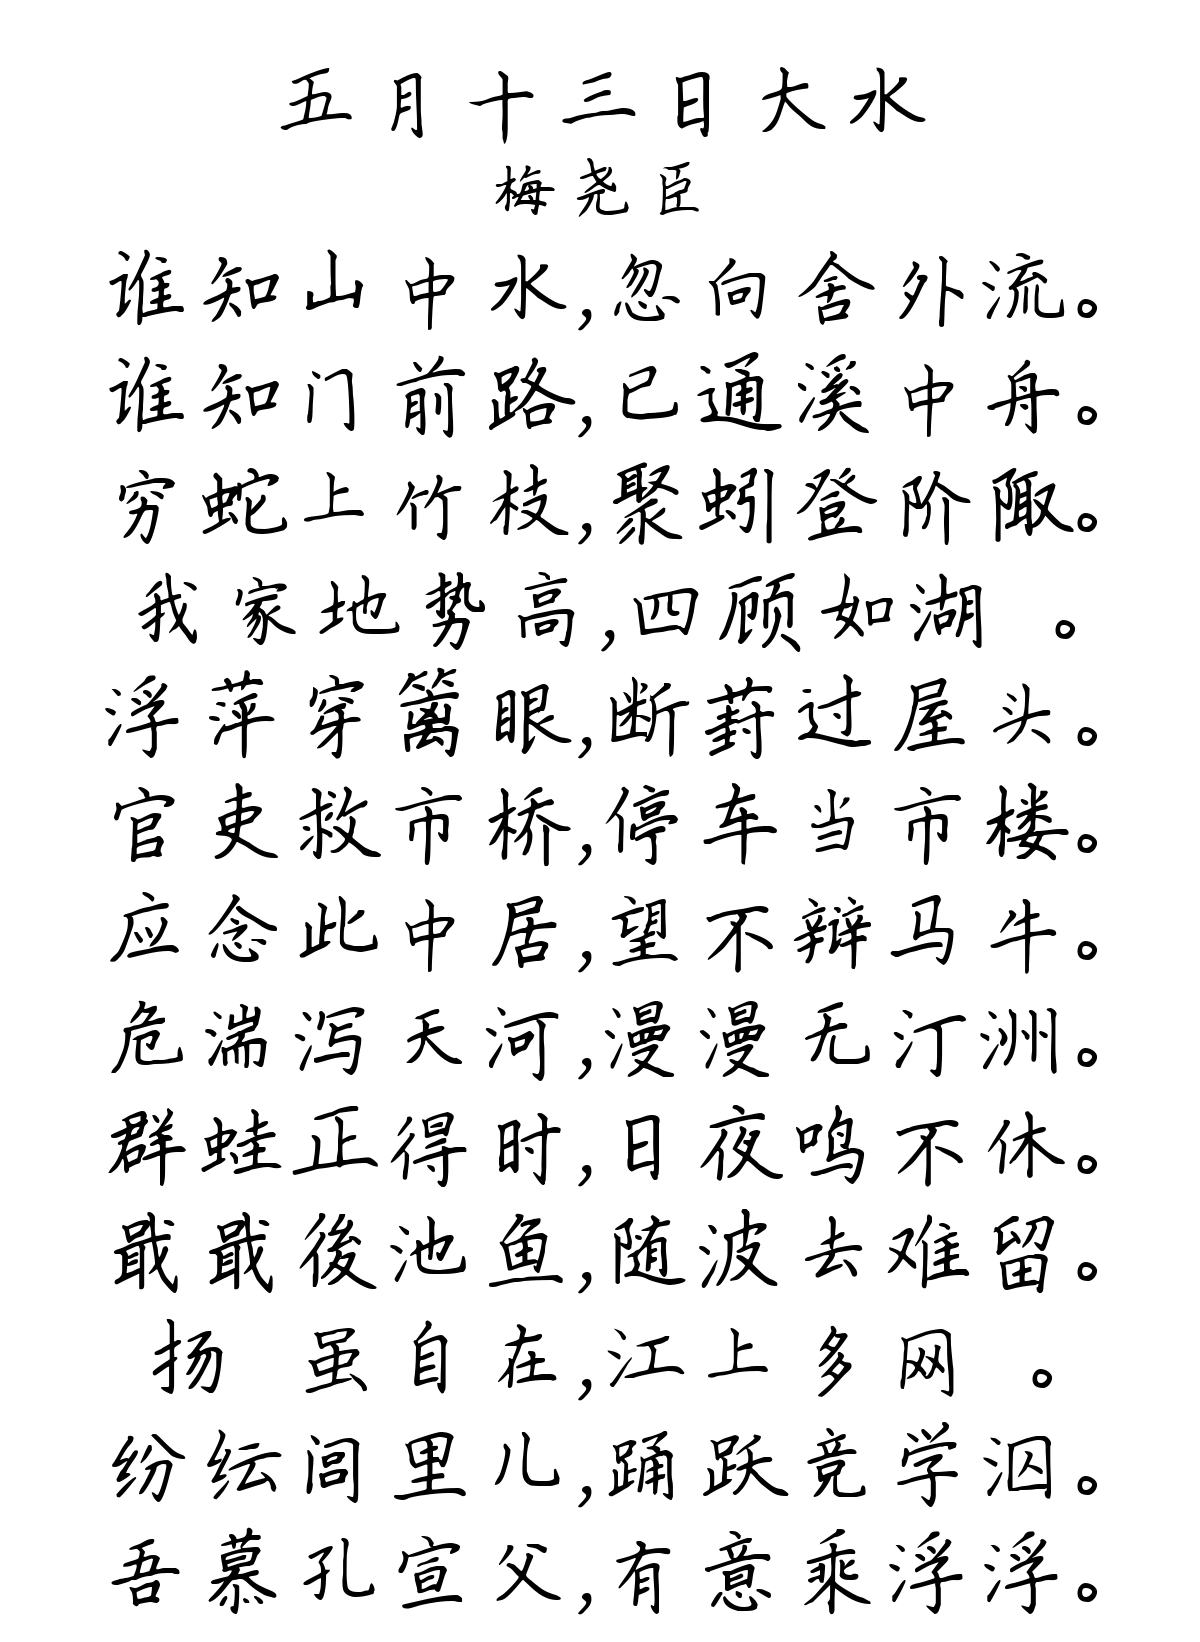 五月十三日大水
梅尧臣
谁知山中水,忽向舍外流。
谁知门前路,已通溪中舟。
穷蛇上竹枝,聚蚓登阶陬。
我家地势高,四顾如湖 。
浮萍穿篱眼,断葑过屋头。
官吏救市桥,停车当市楼。
应念此中居,望不辩马牛。
危湍泻天河,漫漫无汀洲。
群蛙正得时,日夜鸣不休。
戢戢後池鱼,随波去难留。
扬 虽自在,江上多网 。
纷纭闾里儿,踊跃竞学泅。
吾慕孔宣父,有意乘浮浮。